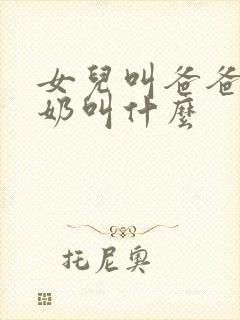 女兒叫爸爸
奶叫什麼
托尼奥